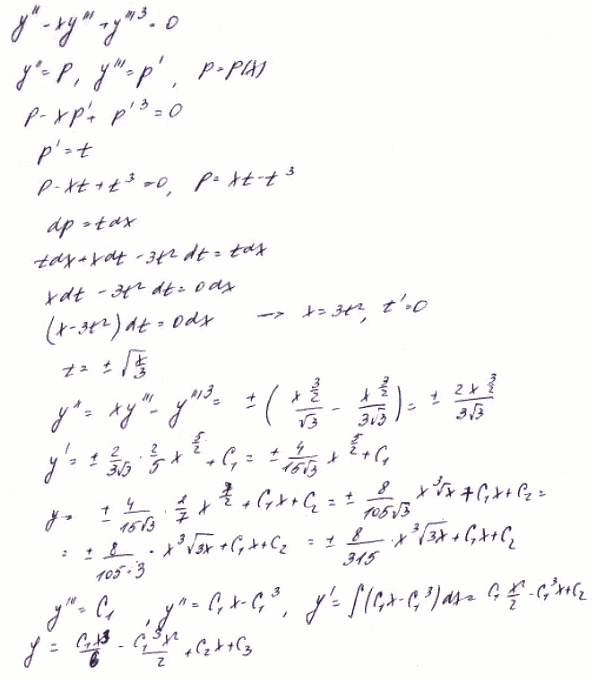 y'' - xy''' + y'''³ = 0
y'' = p, y''' = p', p = p(x)
p - xp' + p'³ = 0
p' = t
p - xt + t³ = 0, p = xt - t³
dp = tdx
tdx + xdt - 3t² dt = tdx
xdt - 3t² dt = 0dx
(x - 3t²) dt = 0dx → x = 3t², t' = 0
t = ± √(x/3)
y'' = xy''' - y'''³ = ± (x^(3/2)/√3 - x^(3/2)/(3√3)) = ± 2x^(3/2)/(3√3)
y' = ± 2/(3√3) · 2/5 x^(5/2) + C₁ = ± 4/(15√3) x^(5/2) + C₁
y = ± 4/(15√3) · 2/7 x^(7/2) + C₁x + C₂ = ± 8/(105√3) x³√x + C₁x + C₂ =
= ± 8/(105·3) · x³√3x + C₁x + C₂ = ± 8/315 · x³√3x + C₁x + C₂
y''' = C₁, y'' = C₁x - C₁³, y' = ∫(C₁x - C₁³)dx = C₁ x²/2 - C₁³x + C₂
y = C₁x³/6 - C₁³x²/2 + C₂x + C₃